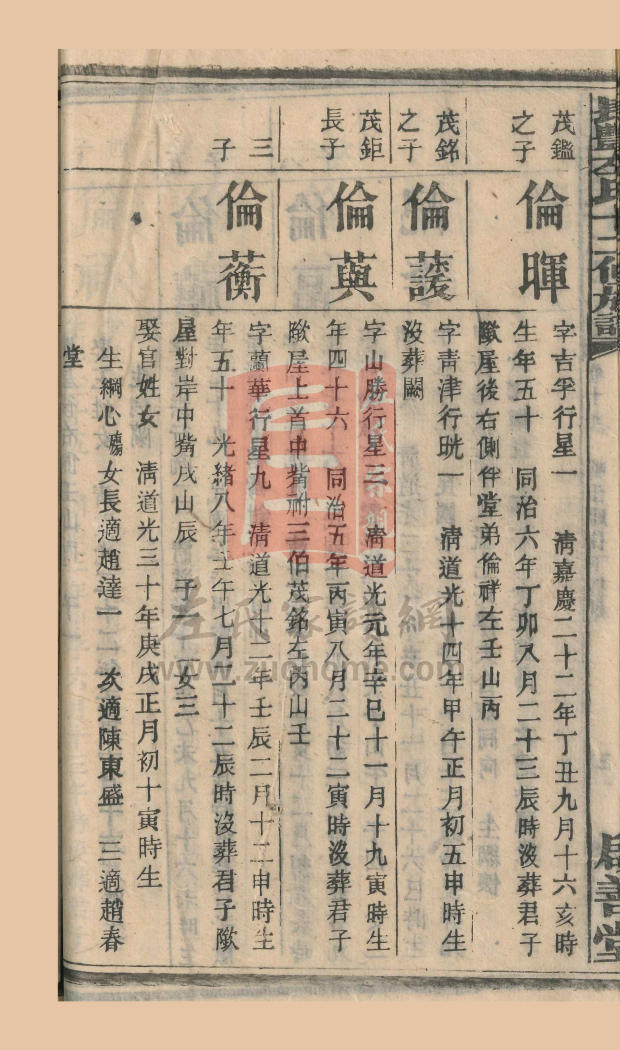 茂鑑
之子
倫暉
字吉孚行星一 清嘉慶二十二年丁丑九月十六亥時
生年五十 同治六年丁卯八月二十三辰時沒葬君子
歟屋後右側伴堂弟倫祥左壬山丙
茂銘
之子
倫護
字青津行珖一 清道光十四年甲午正月初五申時生
沒葬闕
茂鉅
長子
倫英
字山勝行星三 清道光元年辛巳十一月十九寅時生
年四十六 同治五年丙寅八月二十二寅時沒葬君子
歟屋上首中觜祔三伯茂銘左丙山壬
三
子
倫蘅
字蘭華行星九 清道光十二年壬辰二月十二申時生
年五十一 光緒八年壬午七月二十二辰時沒葬君子歟
屋對岸中觜戌山辰 子一 女三
娶官姓女 清道光三十年庚戌正月初十寅時生
生綱心 女長適趙達一 次適陳東盛 三適趙春
堂
氏十二修族譜
善堂
左氏家譜網
www.zuohome.com